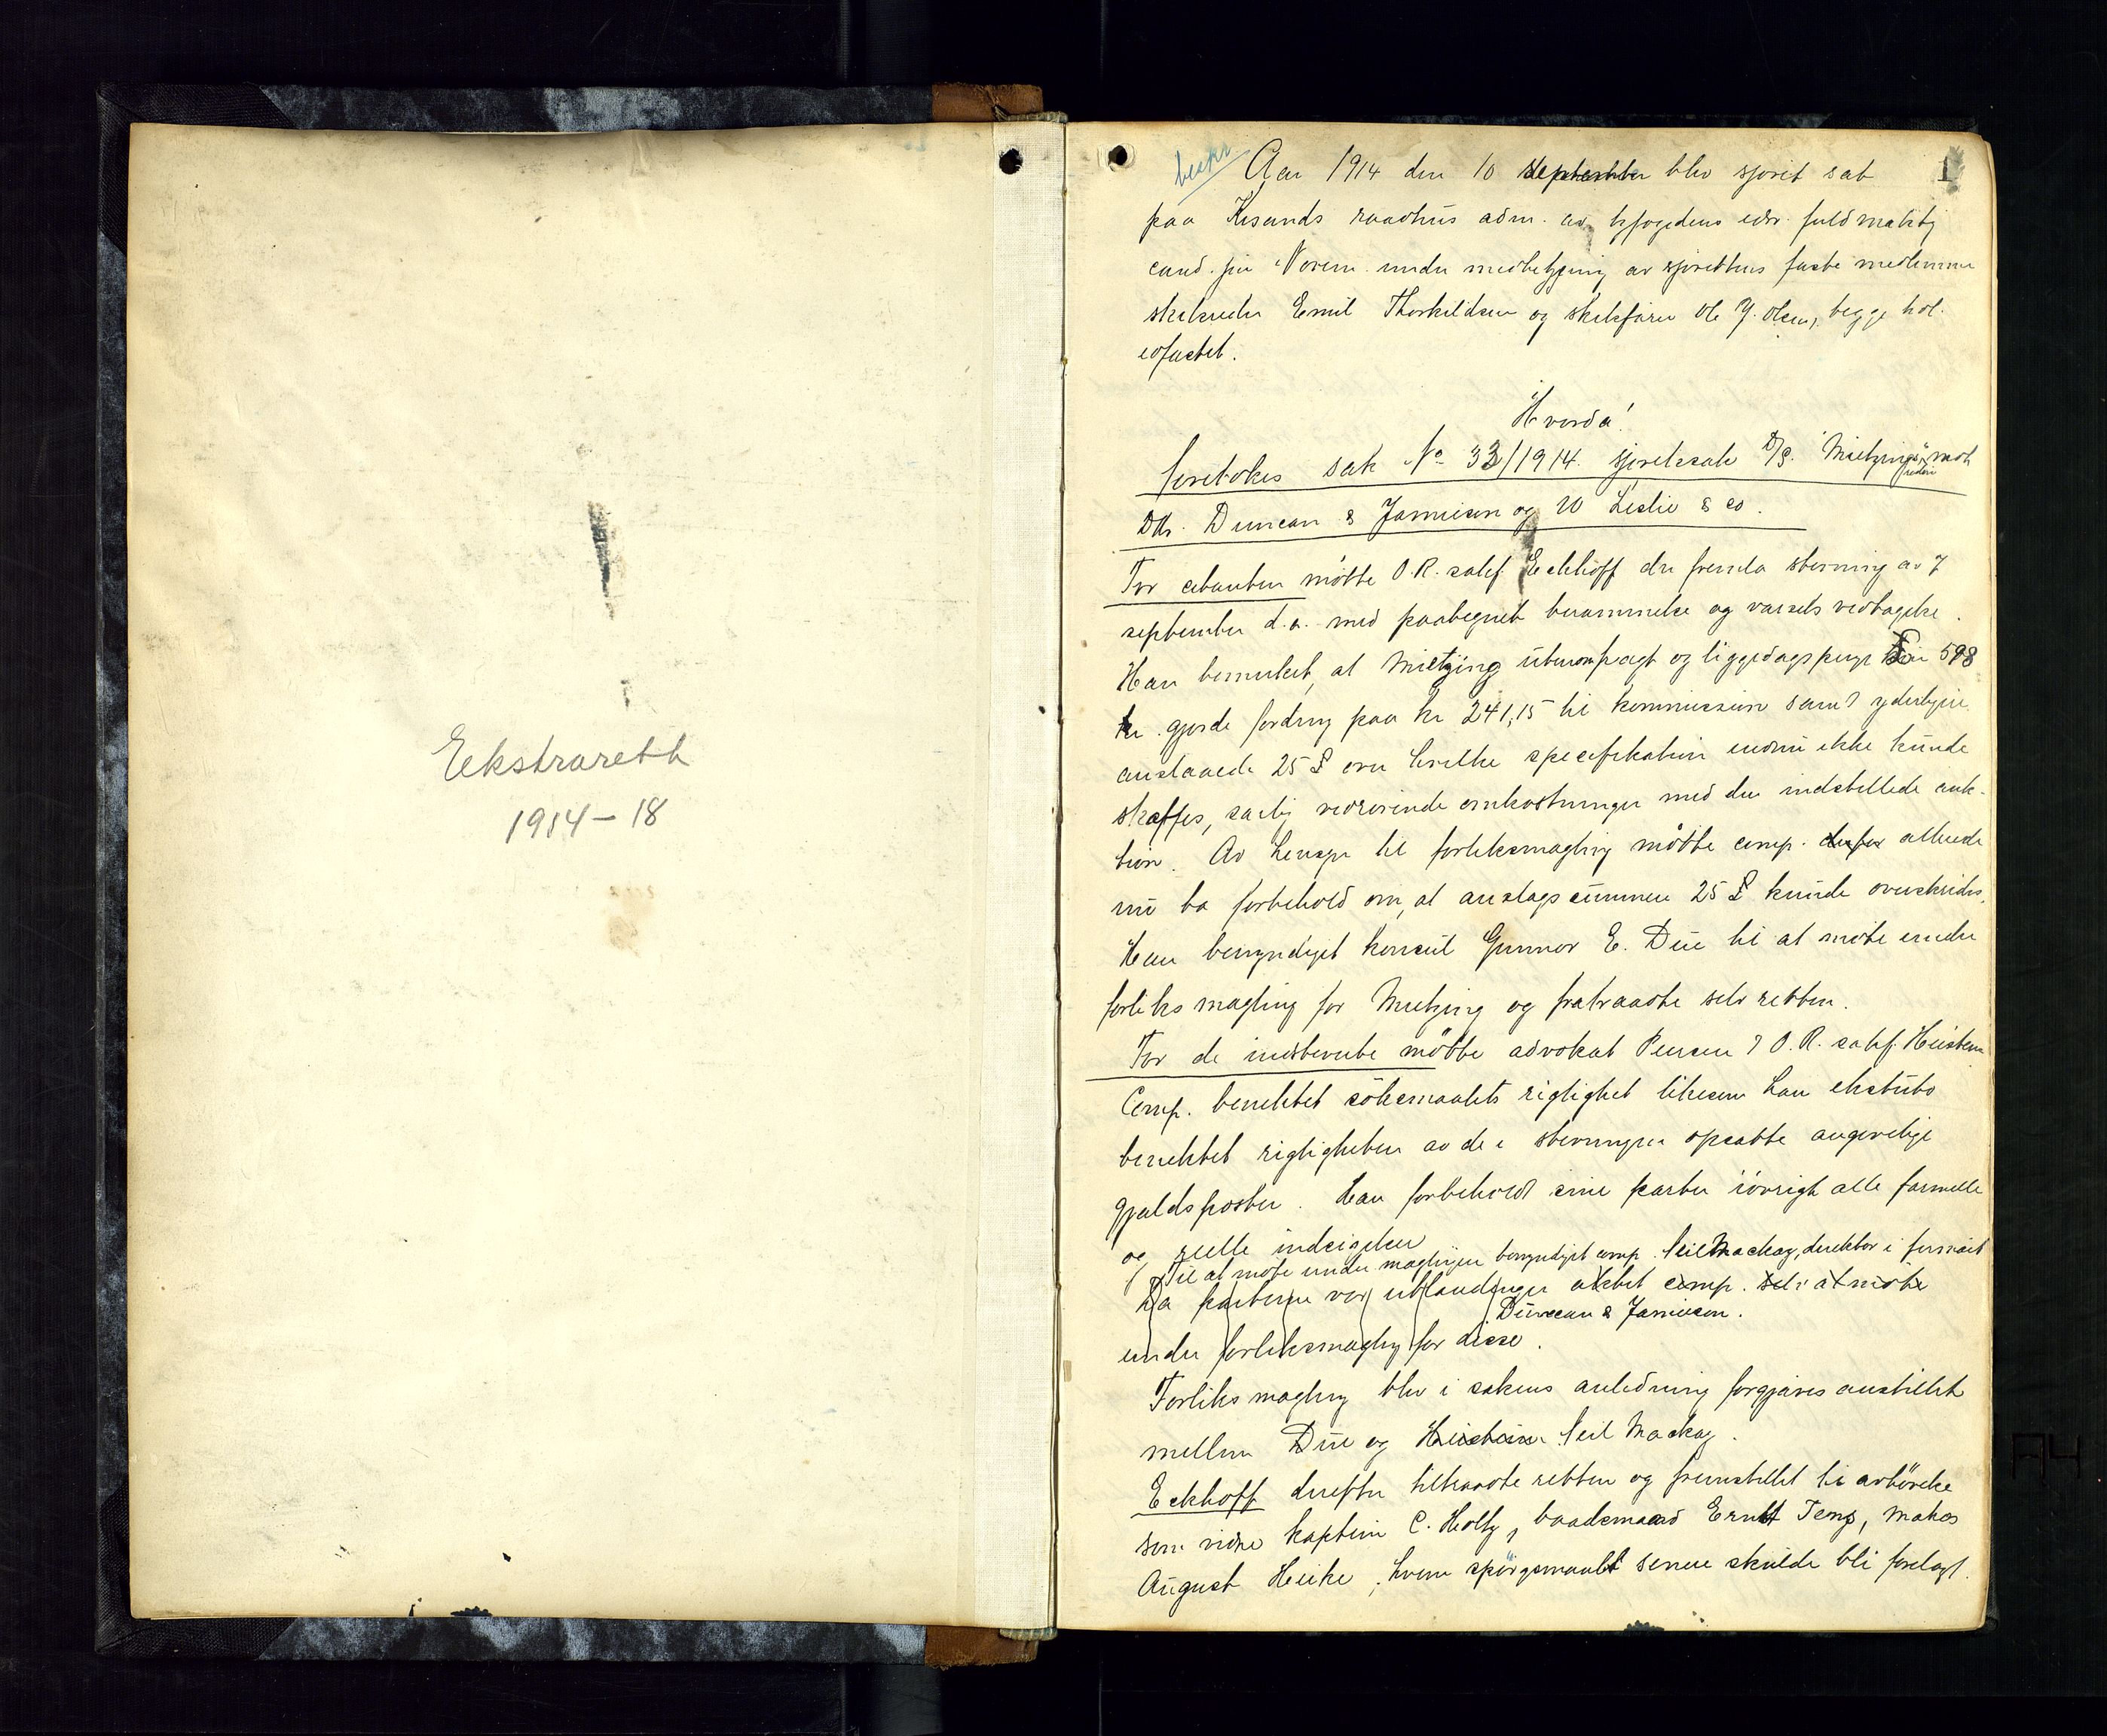 Eekstrarett
1914-18
beskr
1
Aar 1914 den 10 september blev sjøret sat
paa Krsands raadhus adm. av byfogedens edsv. fuldmæktig
cand. jur Norem under medbetjening av sjørettens faste medlemmer
skibsreder Emil Thorkildsen og skibsfører Ole Y. Olsen, begge
edfæstet.
Hvorda!
foretokes sak No 33/1914. sjøretssak D/S. "Mietzings" rederi mot
DHr. Duncan & Jamieson og W Leslie & co.
For citanten møtte O.R. sakf. Eckhoff der fremla stevning av 7
september d.a. med paategnet berammelse og varsels vedtagelse.
Han bemerket, at Mietzing utenom fragt og liggedagspenge £ 598
gjorde fordring paa kr 241,15 til kommission samt yderligere
anslaaede 25 £ over hvilke specifikation endnu ikke kunde
skaffes, særlig vedrørende omkostninger med den indstillede auk-
tion. Av hensyn til forliksmægling måtte comp. derfor allerede
nu ta forbehold om, at anslagssummen 25 £ kunde overskrides.
Han bemyndiget konsul Gunnar E. Due til at møte under
forliksmægling for Mietzing og fratraadte selv retten.
For de indstevnte møtte advokat Pensen ? O.R. sakf. Heistein
Comp. benektet søksmaalets rigtighet likesom han
benektet rigtigheten av de i stevningen opsatte angivelige
gjældsposter. Han forbeholdt sine parter iøvrigt alle formelle
og reelle indsigelser
Til at møte under mæglingen bemyndiget comp. Neil Mackay, direktør i firmaet
Da parterne var utlændinger aktet comp. selv at møte
Duncan & Jamieson.
under forliksmægling for disse.
Forliksmægling blev i sakens anledning forgjæves anstillet
mellem Due og Heistein Neil Mackay.
Eckhoff derefter tiltraadte retten og fremstillet til avhørelse
som vidne kaptein C. Holtz, baadsmand Ernst Tems, matros
August Heike, hvem spørgsmaalet senere skulde bli forelagt.